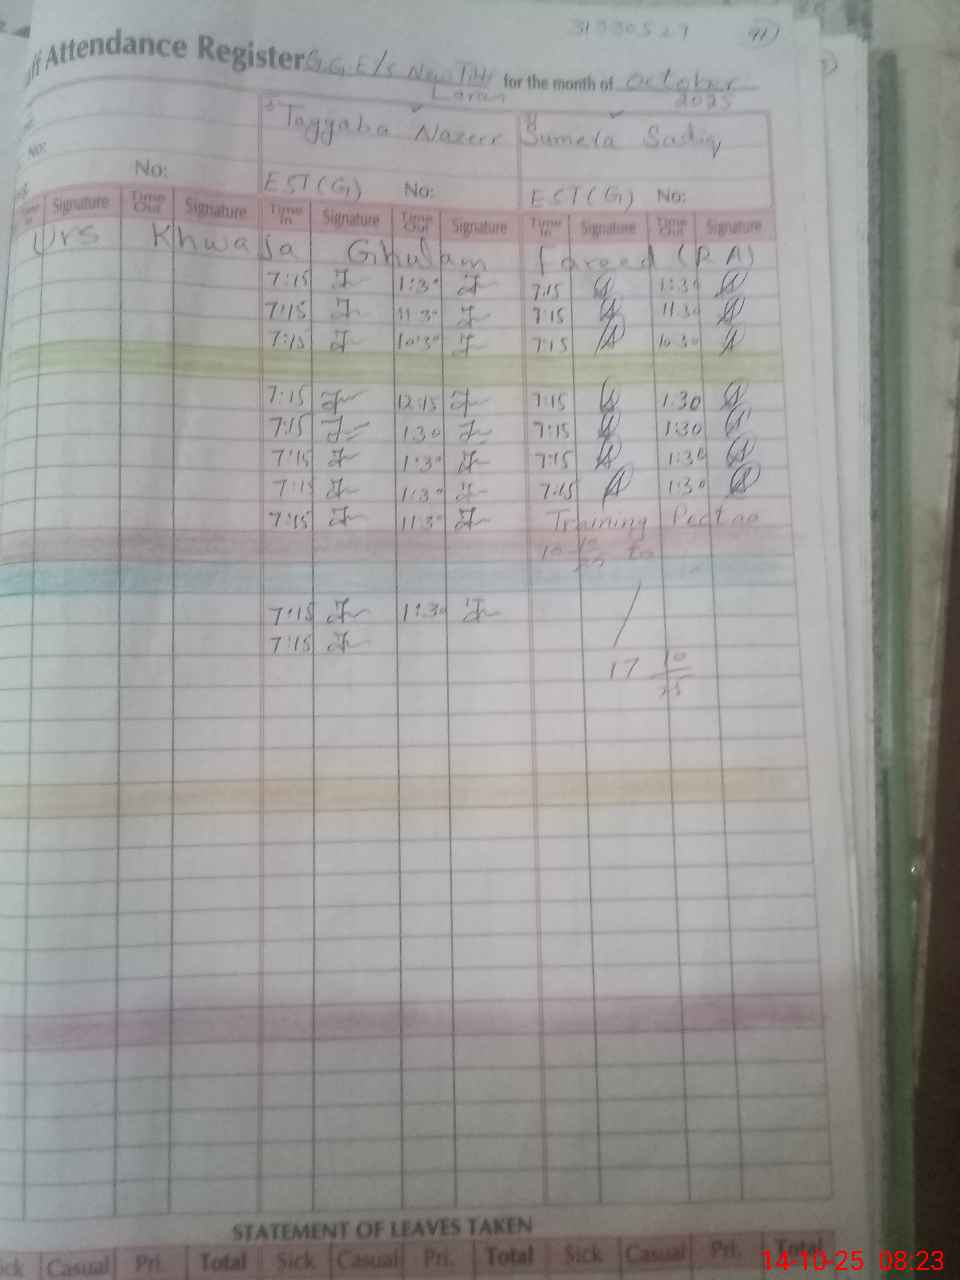 31330527 91
ff Attendance Register G.G.E/S for the month of October
Laran 2025
Tayyaba Nazeer Sumela Sadiq
No:
No: EST(G) No: EST(G) No:
Signature Time Out Signature Time In Signature Time Out Signature Time In Signature Time Out Signature
Urs Khwaja Ghulam fareed (R A)
7:15 1:30 7:15 1:30
7:15 11:30 7:15 11:30
7:15 10:30 7:15 10:30
7:15 12:15 7:15 1:30
7:15 1:30 7:15 1:30
7:15 1:30 7:15 1:30
7:15 1:30 7:15 1:30
7:15 11:30 Training
10 10/25 to
7:15 1:30
7:15
17 10/25
STATEMENT OF LEAVES TAKEN
ick Casual Pri. Total Sick Casual Pri. Total Sick Casual Pri. Total
14-10-25 08:23